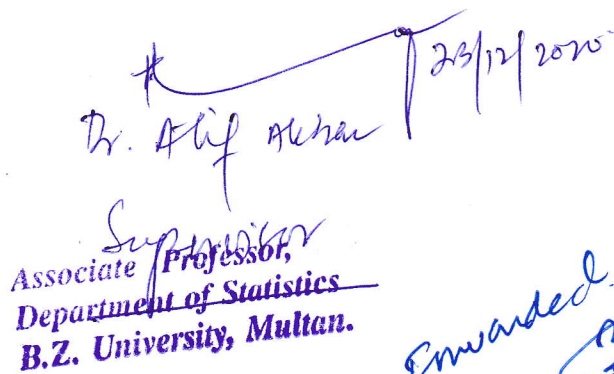 23/12/2020
Dr. Atif Akbar
Supervisor
Associate Professor,
Department of Statistics
B.Z. University, Multan.
Forwarded.